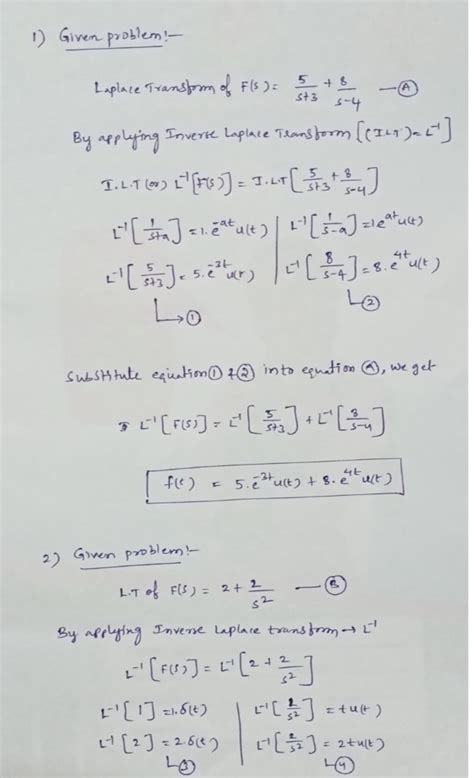 1) Given problem:-
Laplace Transform of F(s) = 5/s+3 + 8/s-4 — Ⓐ
By applying Inverse Laplace Transform [(I.L.T) = L⁻¹]
I.L.T (or) L⁻¹[F(s)] = I.L.T [5/s+3 + 8/s-4]
L⁻¹[1/s+a] = 1.e⁻ᵃᵗ u(t) | L⁻¹[1/s-a] = 1e^at u(t)
L⁻¹[5/s+3] = 5.e⁻³ᵗ u(t) | L⁻¹[8/s-4] = 8.e^4t u(t)
↳ ① ↳ ②
Substitute equation ① & ② into equation Ⓐ, we get
L⁻¹[F(s)] = L⁻¹[5/s+3] + L⁻¹[8/s-4]
f(t) = 5.e⁻³ᵗ u(t) + 8.e^4t u(t)
2) Given problem:-
L.T of F(s) = 2 + 2/s² — Ⓑ
By applying Inverse Laplace transform → L⁻¹
L⁻¹[F(s)] = L⁻¹[2 + 2/s²]
L⁻¹[1] = 1.δ(t) | L⁻¹[1/s²] = t u(t)
L⁻¹[2] = 2.δ(t) | L⁻¹[2/s²] = 2t u(t)
↳ ③ ↳ ④